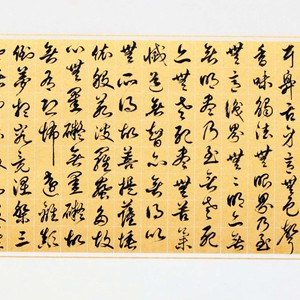 耳鼻舌身意無色聲
香味觸法無眼界乃至
無意識界無〻明亦無
無明盡乃至無老死
亦無老死盡無苦集
滅道無智亦無得以
無所得故菩提薩埵
依般若波羅蜜多故
心無罣礙無罣礙故
無有恐怖遠離顛
倒夢想究竟涅槃三